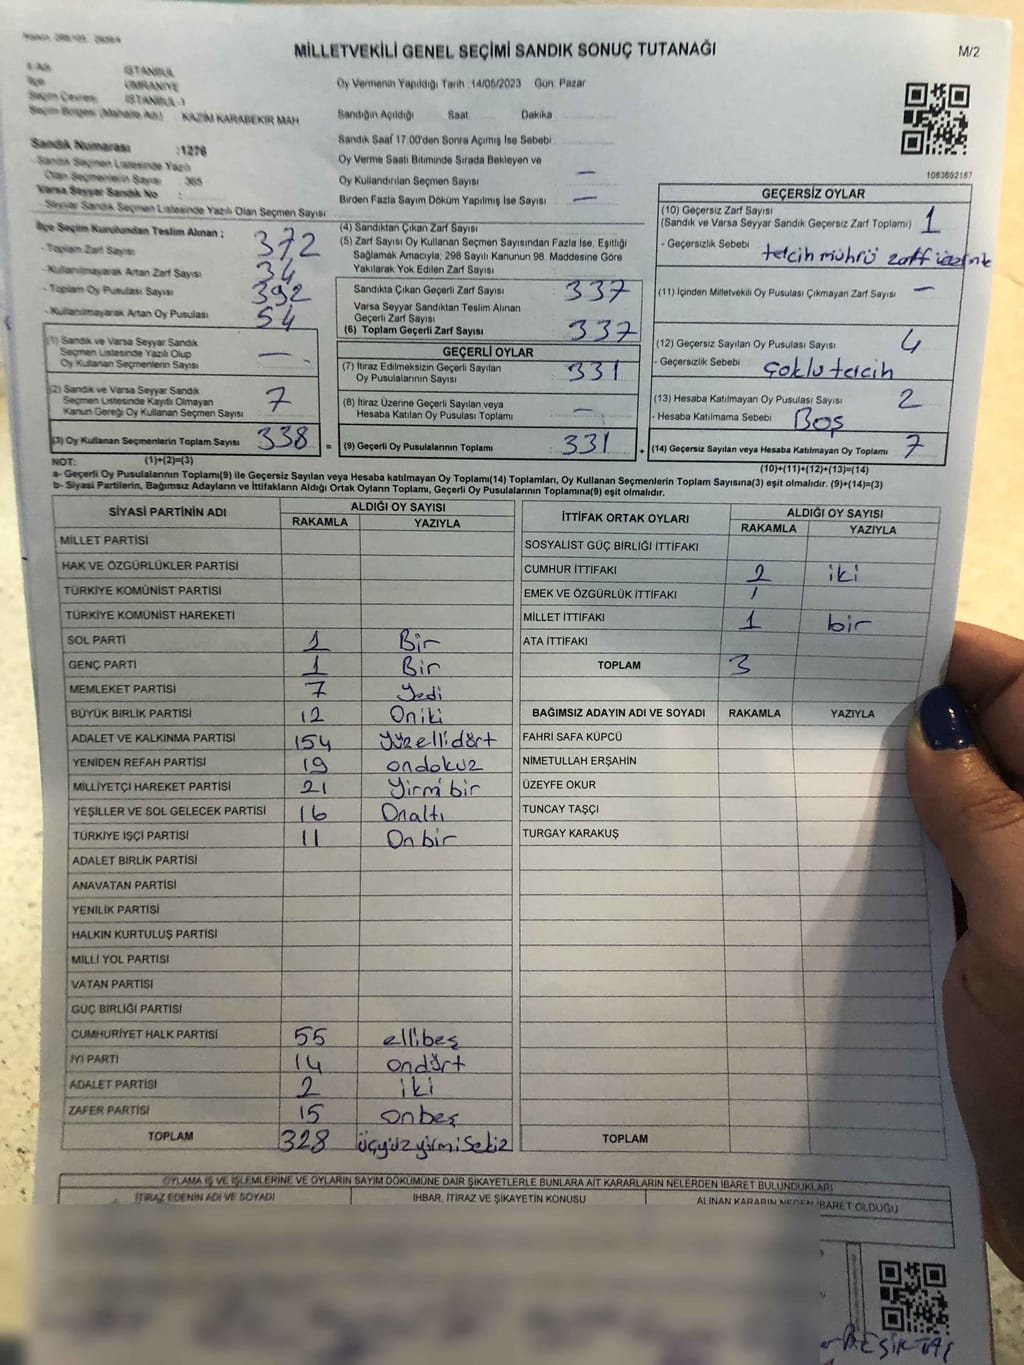 MİLLETVEKİLİ GENEL SEÇİMİ SANDIK SONUÇ TUTANAĞI
M/2
İli Adı İSTANBUL
İlçe ÜMRANİYE
Seçim Çevresi İSTANBUL-1
Seçim Bölgesi (Mahalle Adı) KAZIM KARABEKİR MAH
Sandık Numarası :1276
Sandık Seçmen Listesinde Yazılı
Olan Seçmenlerin Sayısı 365
Varsa Seyyar Sandık No :
Seyyar Sandık Seçmen Listesinde Yazılı Olan Seçmen Sayısı
Oy Vermenin Yapıldığı Tarih :14/05/2023 Gün: Pazar
Sandığın Açıldığı Saat Dakika
Sandık Saat 17.00'den Sonra Açılmış İse Sebebi
Oy Verme Saati Bitiminde Sırada Bekleyen ve
Oy Kullandırılan Seçmen Sayısı —
Birden Fazla Sayım Döküm Yapılmış İse Sayısı —
1083692187
İlçe Seçim Kurulundan Teslim Alınan ;
- Toplam Zarf Sayısı 372
- Kullanılmayarak Artan Zarf Sayısı 34
- Toplam Oy Pusulası Sayısı 392
- Kullanılmayarak Artan Oy Pusulası 54
(1) Sandık ve Varsa Seyyar Sandık
Seçmen Listesinde Yazılı Olup
Oy Kullanan Seçmenlerin Sayısı —
(2) Sandık ve Varsa Seyyar Sandık
Seçmen Listesinde Kayıtlı Olmayan
Kanun Gereği Oy Kullanan Seçmen Sayısı 7
(3) Oy Kullanan Seçmenlerin Toplam Sayısı 338 =
(1)+(2)=(3)
(4) Sandıktan Çıkan Zarf Sayısı
(5) Zarf Sayısı Oy Kullanan Seçmen Sayısından Fazla İse, Eşitliği
Sağlamak Amacıyla, 298 Sayılı Kanunun 98. Maddesine Göre
Yakılarak Yok Edilen Zarf Sayısı
Sandıkta Çıkan Geçerli Zarf Sayısı 337
Varsa Seyyar Sandıktan Teslim Alınan
Geçerli Zarf Sayısı
(6) Toplam Geçerli Zarf Sayısı 337
GEÇERLİ OYLAR
(7) İtiraz Edilmeksizin Geçerli Sayılan
Oy Pusulalarının Sayısı 331
(8) İtiraz Üzerine Geçerli Sayılan veya
Hesaba Katılan Oy Pusulası Toplamı —
(9) Geçerli Oy Pusulalarının Toplamı 331 +
GEÇERSİZ OYLAR
(10) Geçersiz Zarf Sayısı
(Sandık ve Varsa Seyyar Sandık Geçersiz Zarf Toplamı) 1
- Geçersizlik Sebebi tercih mührü zarf üzerinde
(11) İçinden Milletvekili Oy Pusulası Çıkmayan Zarf Sayısı —
(12) Geçersiz Sayılan Oy Pusulası Sayısı 4
- Geçersizlik Sebebi Çoklu tercih
(13) Hesaba Katılmayan Oy Pusulası Sayısı 2
- Hesaba Katılmama Sebebi Boş
(14) Geçersiz Sayılan veya Hesaba Katılmayan Oy Toplamı 7
(10)+(11)+(12)+(13)=(14)
NOT:
a- Geçerli Oy Pusulalarının Toplamı(9) ile Geçersiz Sayılan veya Hesaba katılmayan Oy Toplamı(14) Toplamları, Oy Kullanan Seçmenlerin Toplam Sayısına(3) eşit olmalıdır. (9)+(14)=(3)
b- Siyasi Partilerin, Bağımsız Adayların ve İttifakların Aldığı Ortak Oyların Toplamı, Geçerli Oy Pusulalarının Toplamına(9) eşit olmalıdır.
SİYASİ PARTİNİN ADI ALDIĞI OY SAYISI
RAKAMLA YAZIYLA
MİLLET PARTİSİ
HAK VE ÖZGÜRLÜKLER PARTİSİ
TÜRKİYE KOMÜNİST PARTİSİ
TÜRKİYE KOMÜNİST HAREKETİ
SOL PARTİ 1 Bir
GENÇ PARTİ 1 Bir
MEMLEKET PARTİSİ 7 Yedi
BÜYÜK BİRLİK PARTİSİ 12 Oniki
ADALET VE KALKINMA PARTİSİ 154 Yüzellidört
YENİDEN REFAH PARTİSİ 19 ondokuz
MİLLİYETÇİ HAREKET PARTİSİ 21 Yirmi bir
YEŞİLLER VE SOL GELECEK PARTİSİ 16 Onaltı
TÜRKİYE İŞÇİ PARTİSİ 11 On bir
ADALET BİRLİK PARTİSİ
ANAVATAN PARTİSİ
YENİLİK PARTİSİ
HALKIN KURTULUŞ PARTİSİ
MİLLİ YOL PARTİSİ
VATAN PARTİSİ
GÜÇ BİRLİĞİ PARTİSİ
CUMHURİYET HALK PARTİSİ 55 ellibeş
İYİ PARTİ 14 ondört
ADALET PARTİSİ 2 iki
ZAFER PARTİSİ 15 onbeş
TOPLAM 328 üçyüzyirmisekiz
İTTİFAK ORTAK OYLARI ALDIĞI OY SAYISI
RAKAMLA YAZIYLA
SOSYALİST GÜÇ BİRLİĞİ İTTİFAKI
CUMHUR İTTİFAKI 2 iki
EMEK VE ÖZGÜRLÜK İTTİFAKI
MİLLET İTTİFAKI 1 bir
ATA İTTİFAKI
TOPLAM 3
BAĞIMSIZ ADAYIN ADI VE SOYADI RAKAMLA YAZIYLA
FAHRİ SAFA KÜPCÜ
NİMETULLAH ERŞAHİN
ÜZEYFE OKUR
TUNCAY TAŞÇI
TURGAY KARAKUŞ
TOPLAM
OYLAMA İŞ VE İŞLEMLERİNE VE OYLARIN SAYIM DÖKÜMÜNE DAİR ŞİKAYETLERLE BUNLARA AİT KARARLARIN NELERDEN İBARET BULUNDUKLARI
İTİRAZ EDENİN ADI VE SOYADI İHBAR, İTİRAZ VE ŞİKAYETİN KONUSU ALINAN KARARIN NEDEN İBARET OLDUĞU
BEŞİKTAŞ